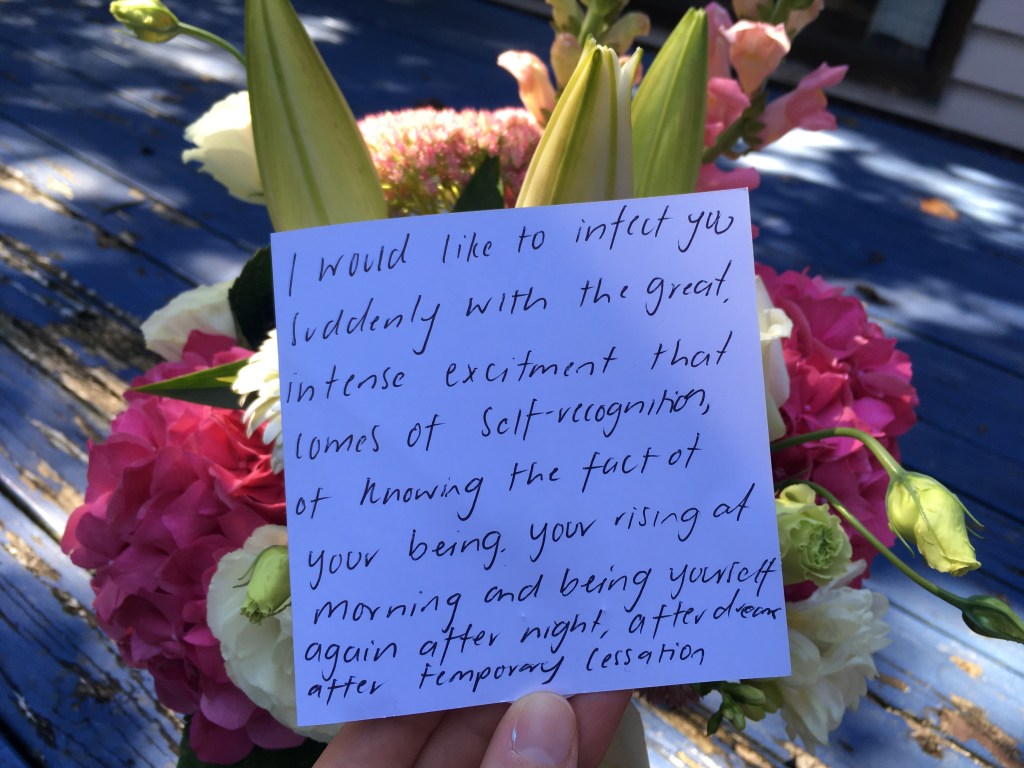 I would like to infect you
suddenly with the great,
intense excitment that
comes of self-recognition,
of knowing the fact of
your being. your rising at
morning and being yourself
again after night, after dream
after temporary cessation